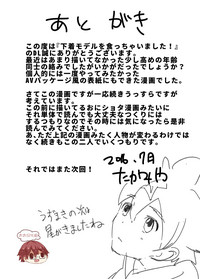 あとがき
この度は『下着モデルを食っちゃいました!』
のDL誠にありがとうございます。
最近はあまり描いてなかった少し高めの年齢
同士の絡みでしたがいかがだったでしょうか?
個人的には一度やってみたかった
AVパッケージ風の表紙にもできた漫画でした。
さてこの漫画ですが一応続きうっすらですが
考えています。
この前に描いてるおにショタ漫画みたいに
それ単体で読んでも大丈夫なつくりには
するつもりなのでその時には気になったら是非
読んでみてください。
あ、ただ上記の漫画みたく人物が変わるわけでは
なく続きもこの二人でいくつもりです。
それではまた次回!
2016.7月